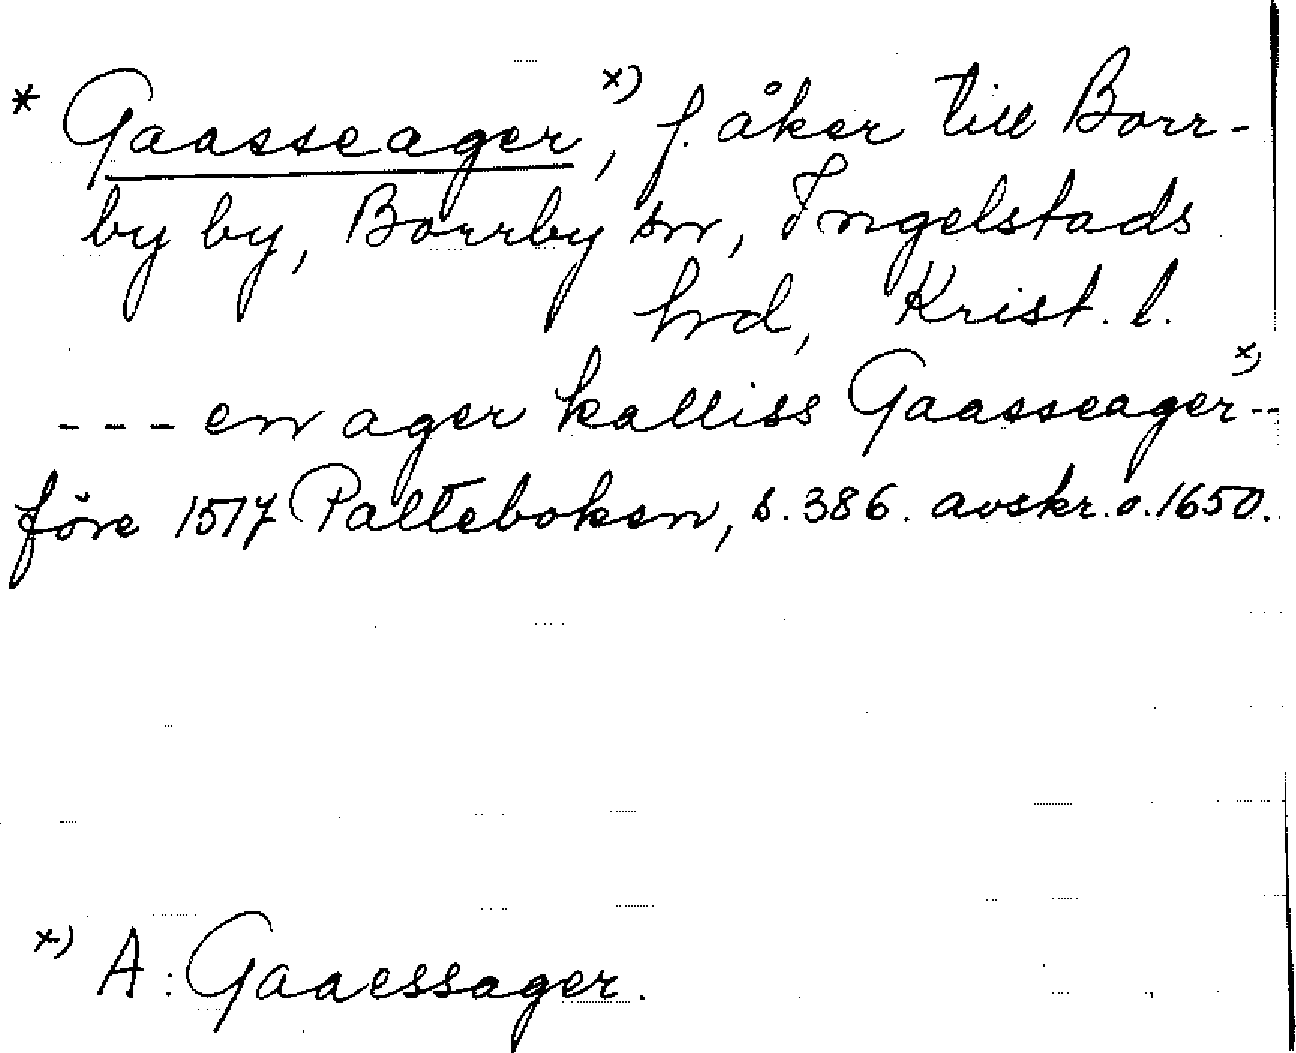 * Gaasseager x), f. åker till Borr-
by by, Borrby sn, Ingelstads
hrd, Krist. l.
--- en ager kalliss Gaasseager x) --
före 1517 Palteboken, s. 386. avskr. o. 1650.
x) A: Gaaessager.